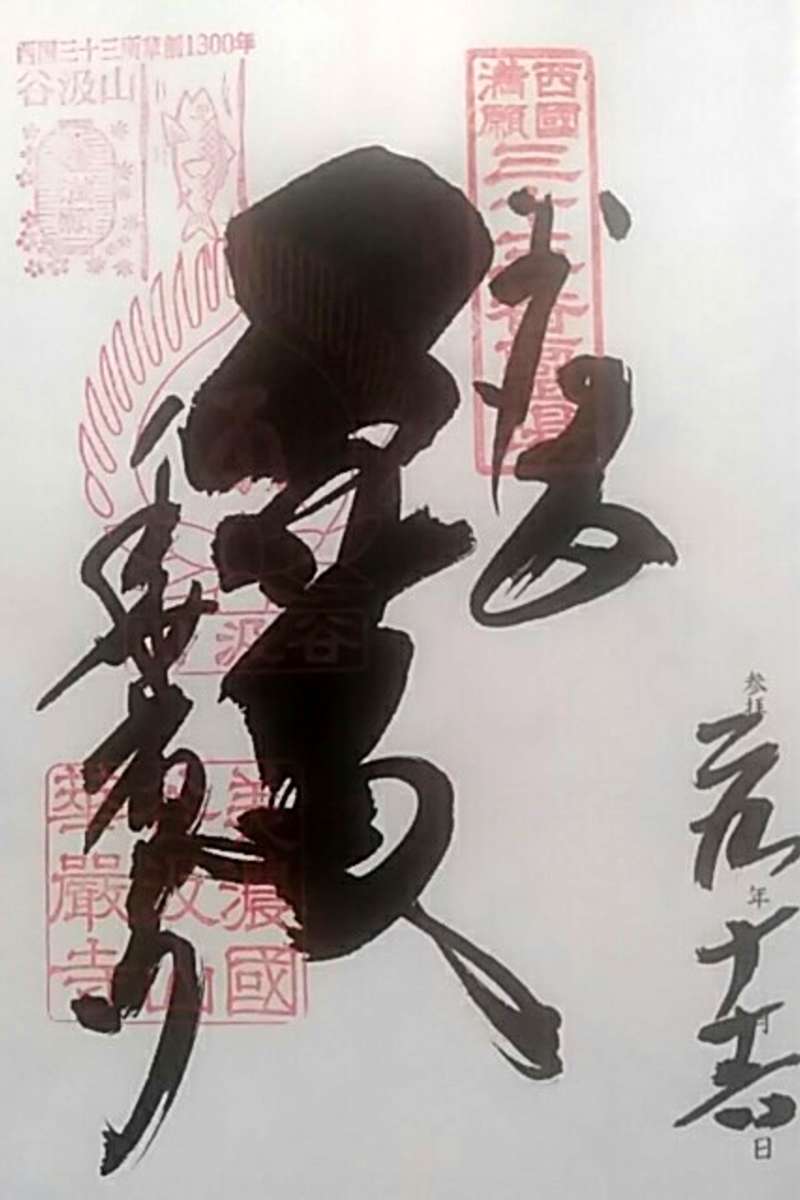 西国三十三所草創1300年
谷汲山
西國
満願
三十三番霊場
奉拝
谷汲
華厳寺
美濃國
谷汲山
華嚴寺
参拝
二九年
十月
十六日